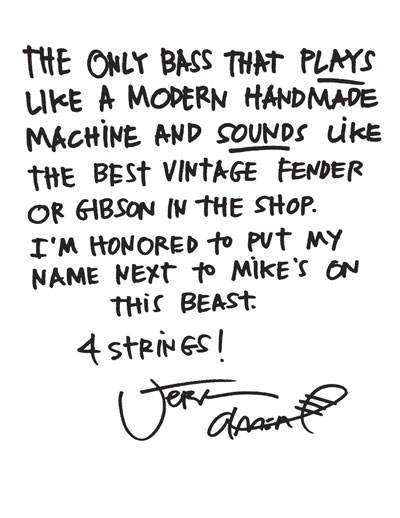 THE ONLY BASS THAT PLAYS
LIKE A MODERN HANDMADE
MACHINE AND SOUNDS LIKE
THE BEST VINTAGE FENDER
OR GIBSON IN THE SHOP.
I'M HONORED TO PUT MY
NAME NEXT TO MIKE'S ON
THIS BEAST.
4 STRINGS!